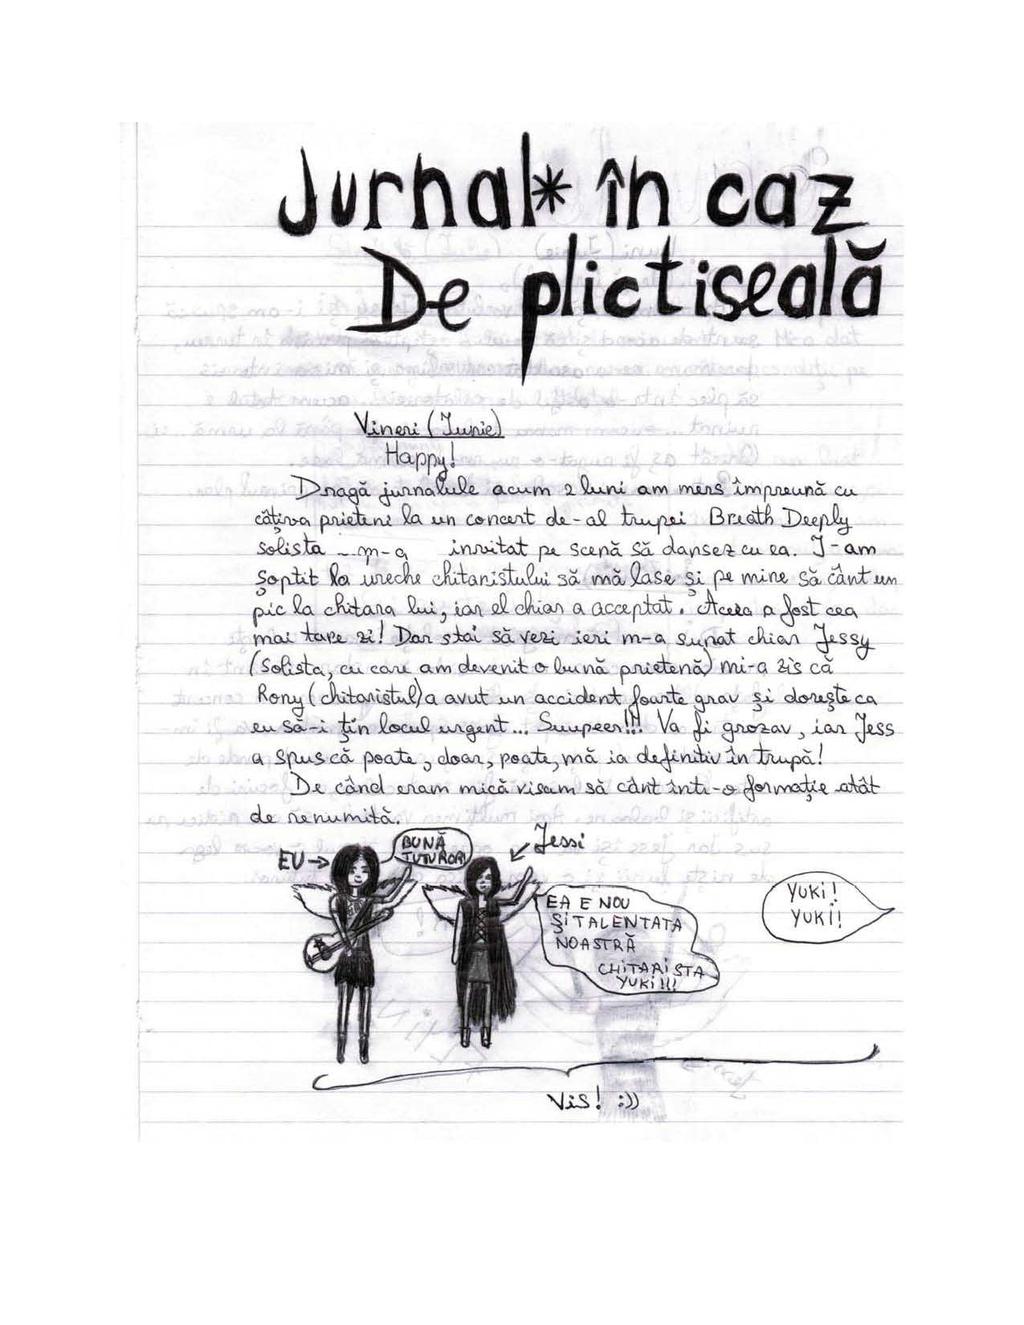 Jurnal* în caz
De plictiseală
Vineri (Iunie)
Happy!
Dragă jurnalule acum 2 luni am mers împreună cu
câțiva prieteni la un concert de-al trupei Breath Deeply
solista m-a invitat pe scenă să dansez cu ea. I-am
șoptit la ureche chitaristului să mă lase și pe mine să cânt un
pic la chitara lui, iar el chiar a acceptat. Aceea a fost cea
mai tare zi! Dar stai să vezi ieri m-a sunat chiar Jessy
(solista, cu care am devenit o bună prietenă) mi-a zis că
Rony (chitaristul) a avut un accident foarte grav și dorește ca
eu să-i țin locul urgent... Suupeer!!! Va fi grozav, iar Jess
a spus că poate, doar, poate, mă ia definitiv în trupă!
De când eram mică visam să cânt într-o formație atât
de renumită.
EU →
BUNĂ
TUTUROR!
Jessi
EA E NOU
ȘI TALENTATA
NOASTRĂ
CHITARISTA
YUKI!!!
YUKI!
YUKI!
Vis! :))